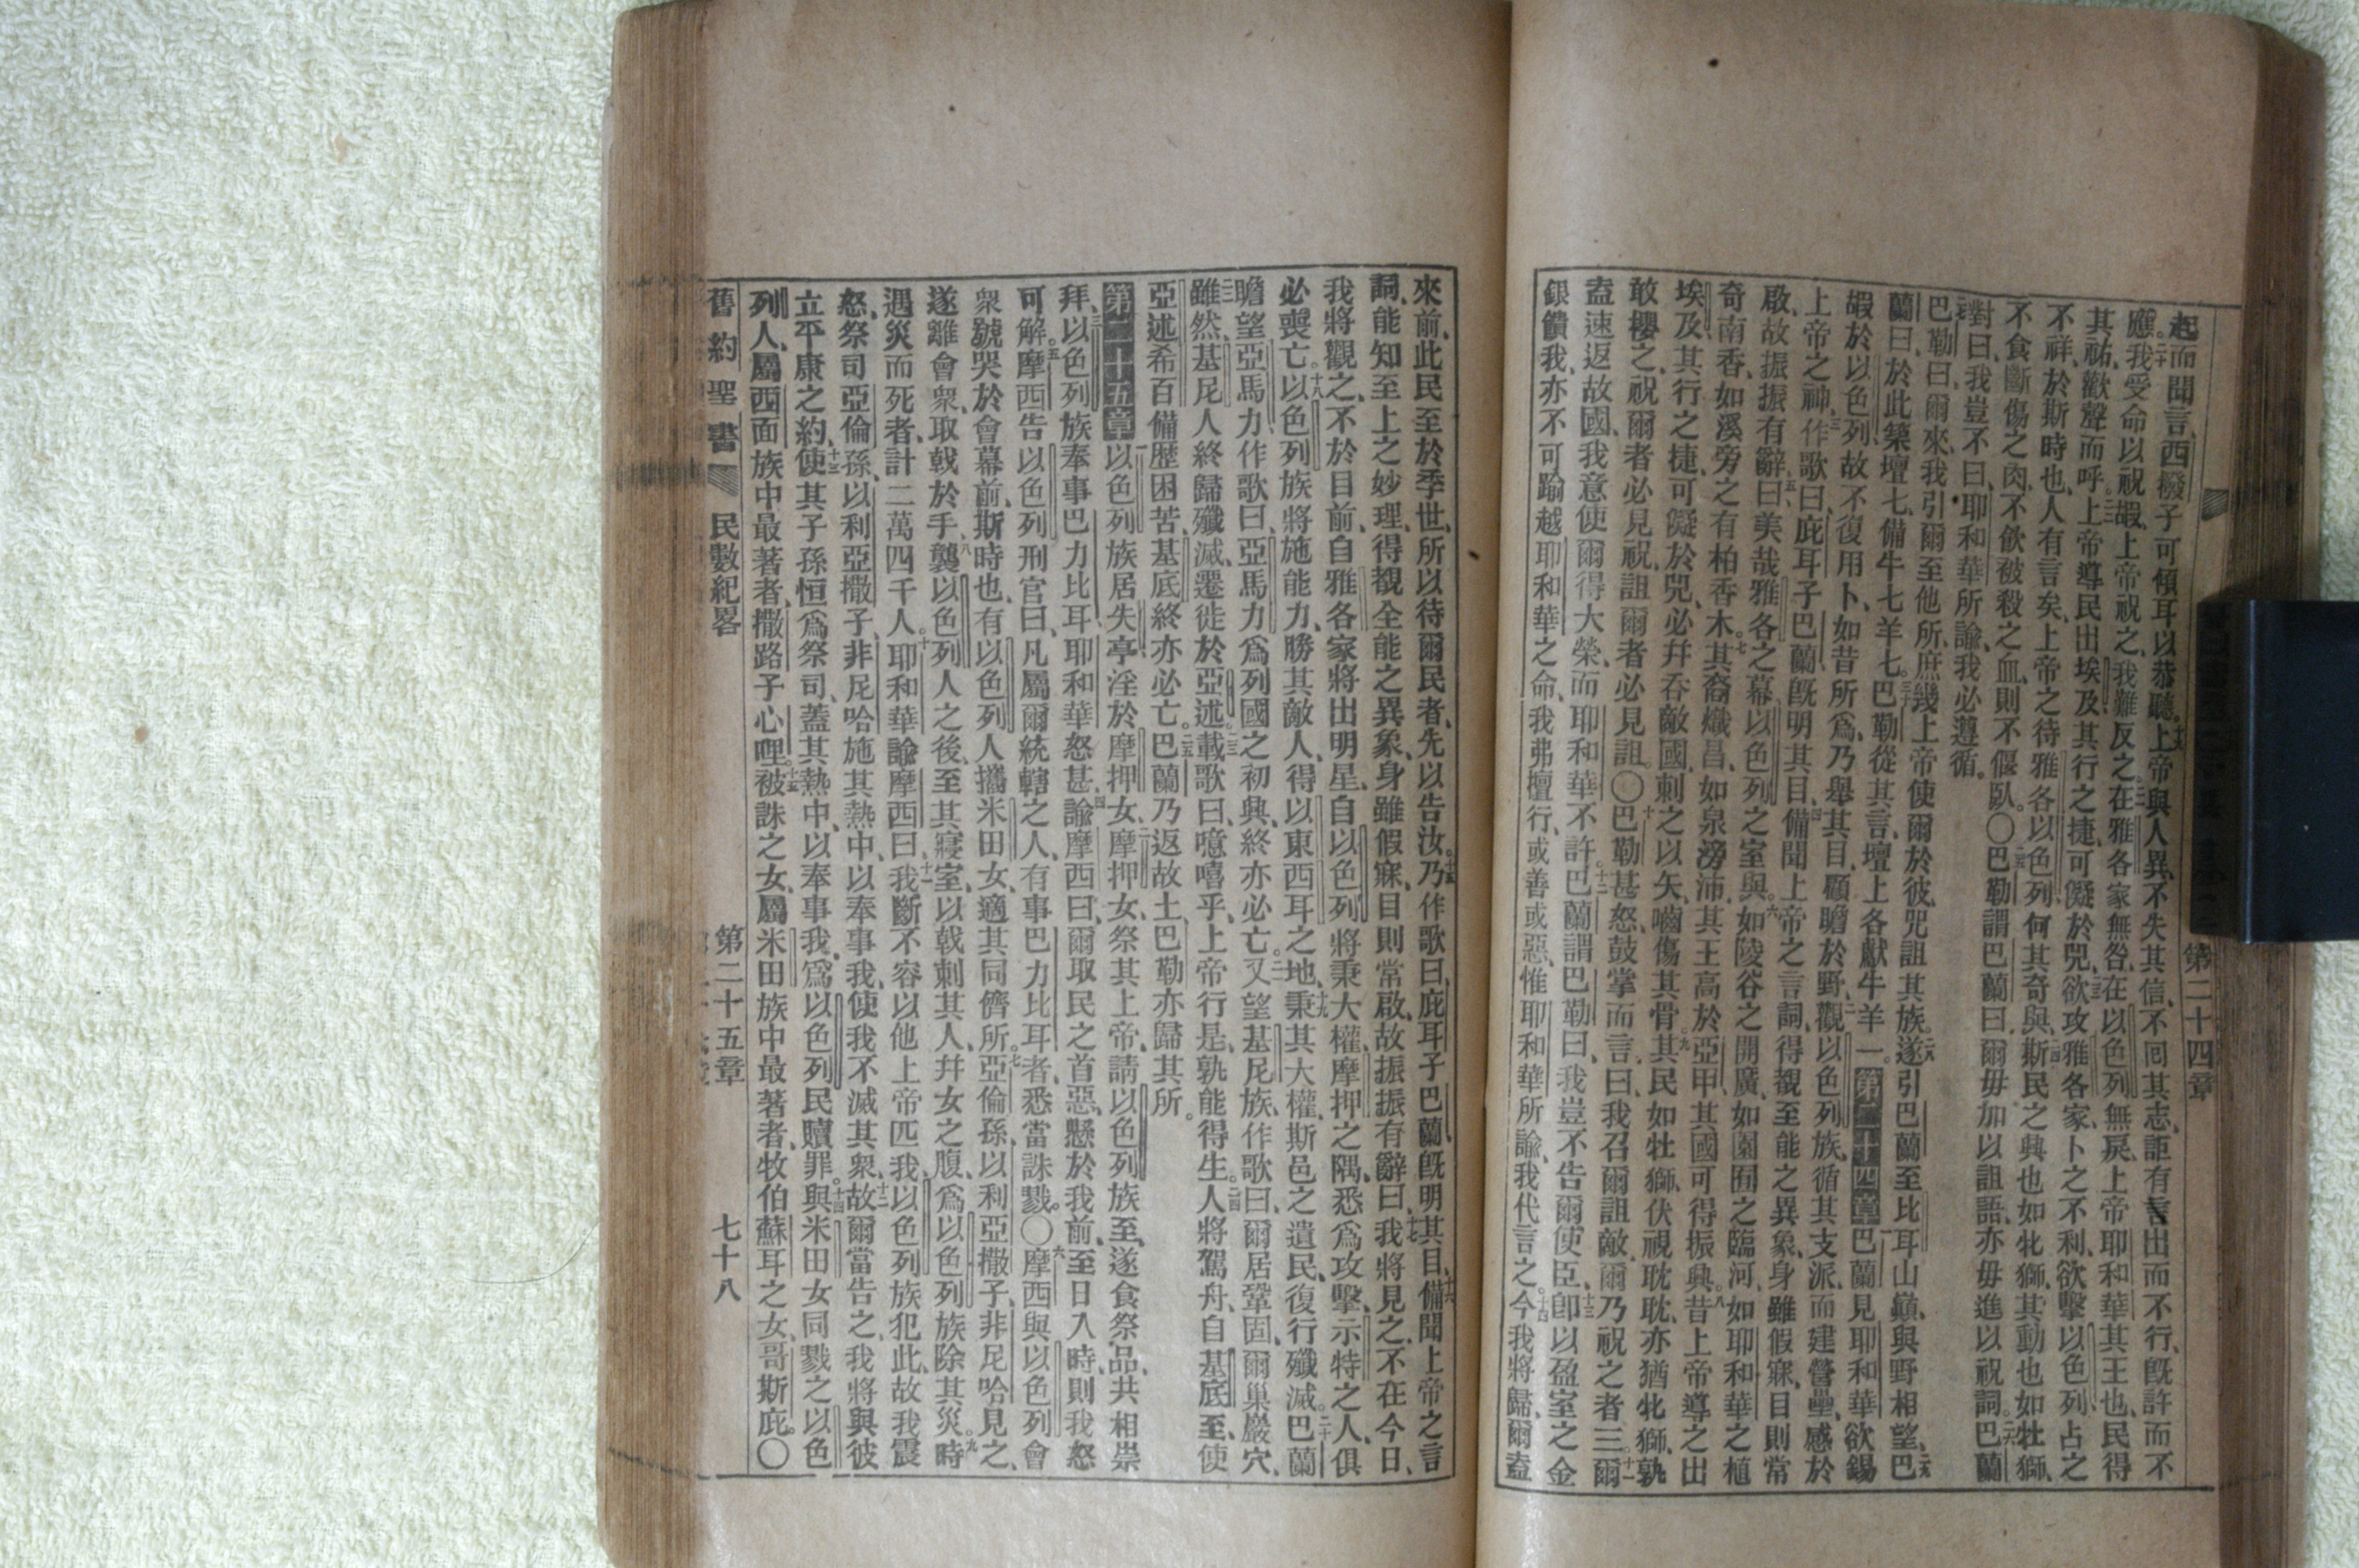 起而聞言、西撥子可傾耳以恭聽。十九上帝與人異、不失其信、不回其志、詎有言出而不行、旣許而不
應。二十我受命以祝嘏、上帝祝之、我難反之。二一在雅各家無咎、在以色列無戾、上帝耶和華其王也、民得
其祐、歡聲而呼。二二上帝導民出埃及、其行之捷、可儗於兕。二三欲攻雅各家、卜之不利、欲擊以色列、占之
不祥、於斯時也、人有言矣、上帝之待雅各以色列、何其奇與。二四斯民之興也如牝獅、其動也如牡獅、
不食斷傷之肉、不飲被殺之血、則不偃臥。〇二五巴勒謂巴蘭曰、爾毋加以詛語、亦毋進以祝詞。二六巴蘭
對曰、我豈不曰、耶和華所諭、我必遵循。
巴勒曰、爾來、我引爾至他所、庶幾上帝使爾於彼、咒詛其族。二八遂引巴蘭至比耳山巔、與野相望、二九巴
蘭曰、於此築壇七、備牛七羊七。三十巴勒從其言、壇上各獻牛羊一。第二十四章一巴蘭見耶和華欲錫
嘏於以色列、故不復用卜、如昔所爲、乃舉其目、顧瞻於野、二觀以色列族、循其支派、而建營壘、感於
上帝之神、三作歌曰、庇耳子巴蘭旣明其目、四備聞上帝之言詞、得覩至能之異象、身雖假寐、目則常
啟、故振振有辭曰、五美哉雅各之幕、以色列之室與。六如陵谷之開廣、如園囿之臨河、如耶和華之植
奇南香、如溪旁之有柏香木。七其裔熾昌、如泉滂沛、其王高於亞甲、其國可得振興。八昔上帝導之出
埃及、其行之捷、可儗於兕、必幷吞敵國、刺之以矢、嚙傷其骨。九其民如牡獅、伏視耽耽、亦猶牝獅、孰
敢攖之、祝爾者必見祝、詛爾者必見詛。〇十巴勒甚怒、鼓掌而言、曰、我召爾詛敵、爾乃祝之者三。十一爾
盍速返故國、我意使爾得大榮、而耶和華不許。十二巴蘭謂巴勒曰、我豈不告爾使臣、十三卽以盈室之金
銀饋我、亦不可踰越耶和華之命、我弗擅行、或善或惡、惟耶和華所諭、我代言之。十四今我將歸、爾盍
來前、此民至於季世、所以待爾民者、先以告汝。十五乃作歌曰、庇耳子巴蘭旣明其目、十六備聞上帝之言
詞、能知至上之妙理、得覩全能之異象、身雖假寐、目則常啟、故振振有辭曰、十七我將見之、不在今日、
我將觀之、不於目前、自雅各家將出明星、自以色列將秉大權、摩押之隅、悉爲攻擊、示特之人、俱
必喪亡。十八以色列族將施能力、勝其敵人、得以東西耳之地、十九秉其大權、斯邑之遺民、復行殲滅。二十巴蘭
瞻望亞馬力作歌曰、亞馬力爲列國之初興、終亦必亡。二一又望基尼族、作歌曰、爾居鞏固、爾巢巖穴、
二二雖然、基尼人終歸殲滅、遷徙於亞述。二三載歌曰、噫嘻乎、上帝行是、孰能得生。二四人將駕舟、自基底至、使
亞述希百備歷困苦、基底終亦必亡。二五巴蘭乃返故土、巴勒亦歸其所。
第二十五章一以色列族居失亭、淫於摩押女、二摩押女祭其上帝、請以色列族至、遂食祭品、共相崇
拜、三以色列族奉事巴力比耳、耶和華怒甚、四諭摩西曰、爾取民之首惡、懸於我前、至日入時、則我怒
可解。五摩西告以色列刑官曰、凡屬爾統轄之人、有事巴力比耳者、悉當誅戮。〇六摩西與以色列會
衆、號哭於會幕前、斯時也、有以色列人攜米田女、適其同儕所。七亞倫孫、以利亞撒子、非尼哈見之、
遂離會衆、取戟於手、八襲以色列人之後、至其寢室、以戟刺其人、幷女之腹、爲以色列族除其災。九時
遇災而死者、計二萬四千人。十耶和華諭摩西曰、十一我斷不容以他上帝匹我、以色列族犯此、故我震
怒、祭司亞倫孫、以利亞撒子、非尼哈施其熱中、以奉事我、使我不滅其衆、十二故爾當告之、我將與彼
立平康之約、十三使其子孫恒爲祭司、蓋其熱中、以奉事我、爲以色列民贖罪。十四與米田女同戮之以色
列人、屬西面族中最著者、撒路子心哩。十五被誅之女、屬米田族中最著者、牧伯蘇耳之女、哥斯庇。〇
舊約聖書 民數紀畧 第二十五章 七十八
第二十四章